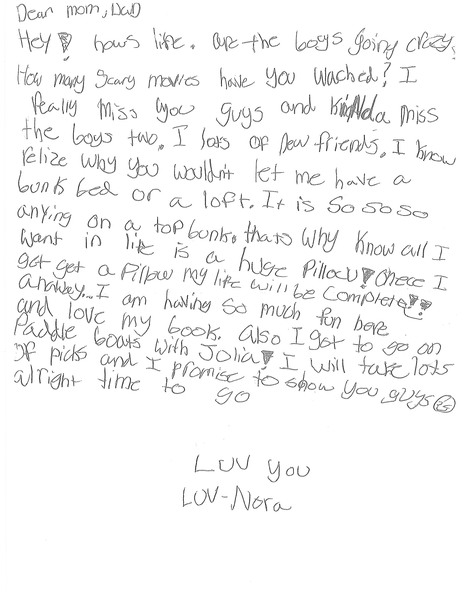 Dear mom, DaD
Hey! hows life. are the boys going crazy.
How many scary movies have you wached? I
really miss you guys and kinda miss
the boys two. I lots of new friends. I know
relize why you wouldn't let me have a
bunk bed or a loft. It is so so so
anying on a top bunk. thats why know all I
want in life is a huge pillow! Once I
get get a pillow my life will be complete!!
anaway... I am having so much fun here
and love my book. Also I got to go on
Paddle boats with Jolia! I will take lots
of picks and I promise to show you guys
alright time to go
Luv you
LUV-Nora